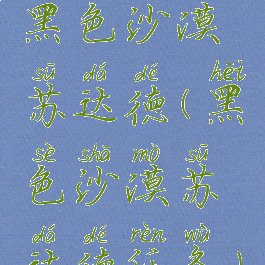 黑色沙漠
sū dá dé hēi
苏达德(黑
sè shā mò sū
色沙漠苏
dá dé rèn wù
达德任务)